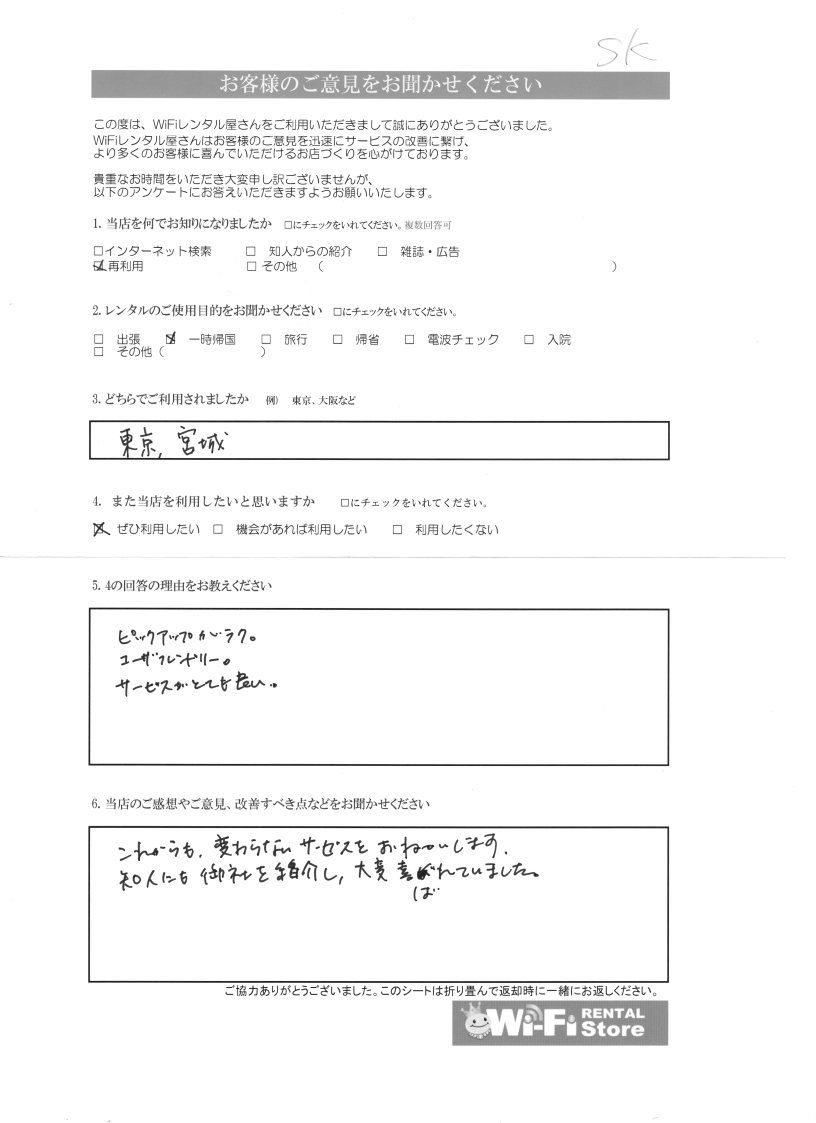 SK
お客様のご意見をお聞かせください
この度は、WiFiレンタル屋さんをご利用いただきまして誠にありがとうございました。
WiFiレンタル屋さんはお客様のご意見を迅速にサービスの改善に繋げ、
より多くのお客様に喜んでいただけるお店づくりを心がけております。
貴重なお時間をいただき大変申し訳ございませんが、
以下のアンケートにお答えいただきますようお願いいたします。
1. 当店を何でお知りになりましたか □にチェックをいれてください。複数回答可
□インターネット検索 □ 知人からの紹介 □ 雑誌・広告
☑再利用 □ その他 （ ）
2. レンタルのご使用目的をお聞かせください □にチェックをいれてください。
□ 出張 ☑ 一時帰国 □ 旅行 □ 帰省 □ 電波チェック □ 入院
□ その他（ ）
3. どちらでご利用されましたか 例） 東京、大阪など
東京, 宮城
4. また当店を利用したいと思いますか □にチェックをいれてください。
☒ ぜひ利用したい □ 機会があれば利用したい □ 利用したくない
5. 4の回答の理由をお教えください
ピックアップがラク。
ユーザフレンドリー。
サービスがとても良い。
6. 当店のご感想やご意見、改善すべき点などをお聞かせください
これからも、変わらないサービスをおねがいします。
知人にも御社を紹介し, 大変喜ばれていました。
ば
ご協力ありがとうございました。このシートは折り畳んで返却時に一緒にお返しください。
Wi-Fi RENTAL Store